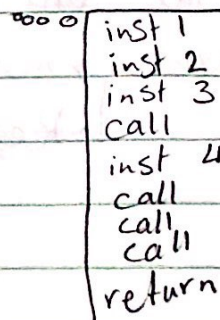 inst 1
inst 2
inst 3
call
inst 4
call
call
call
return